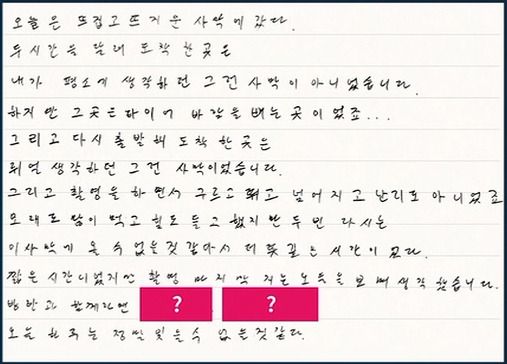 오늘은 뜨겁고 뜨거운 사막에 갔다.
두시간을 달려 도착한 곳은
내가 평소에 생각하던 그런 사막이 아니었습니다.
하지만 그곳은 타이어 바람을 빼는 곳이었죠...
그리고 다시 출발해 도착한 곳은
뭐얼 생각하던 그런 사막이었습니다.
그리고 촬영을 하면서 구르고 넘어지고 난리도 아니었죠
모래도 많이 먹고 힘도 들고 했지만 두번 다시는
이 사막에 올 수 없을것 같아서 더 뜻깊은 시간이 였다.
짧은 시간이였지만 촬영 마지막 지는 노을을 보며 생각했습니다.
방탄과 함께라면 ? ?
오늘 하루는 정말 잊을수 없을것 같다.